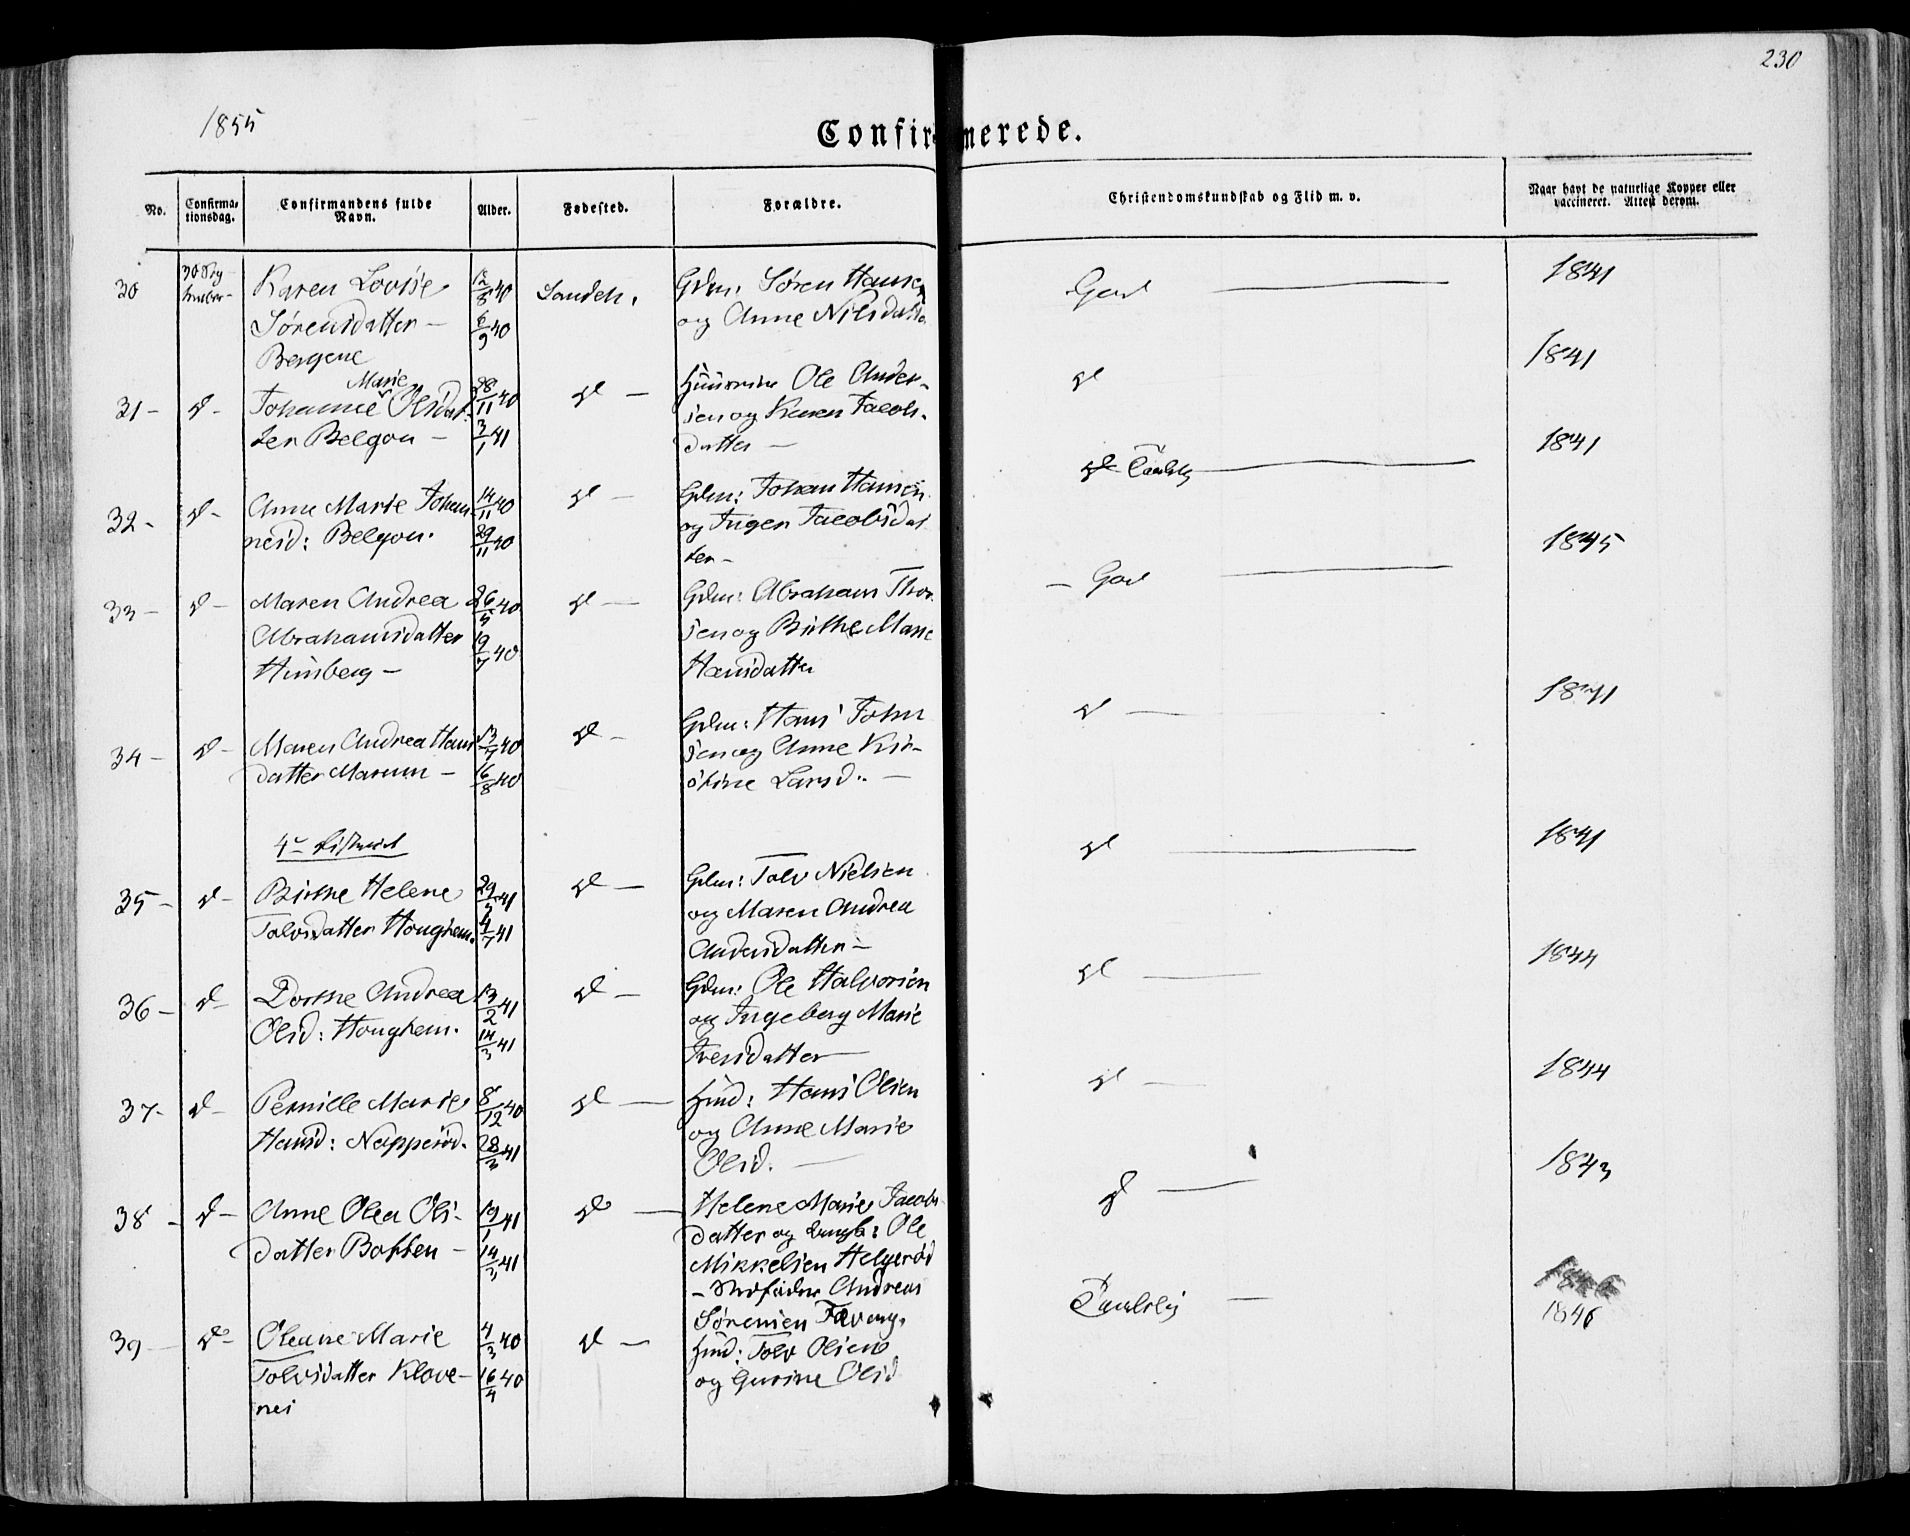 230
1855
Confirmerede.
No.
Confirma-
tionsdag.
Confirmandens fulde
Navn.
Alder.
Fødested.
Forældre.
Christendomskundskab og Flid m. v.
Naar havt de naturlige Kopper eller
vaccineret. Attest derom.
30
Karen Lovise
Sørensdatter -
Bergene
8 40
6/9 40
Sandeh.
Gdm. Søren Hansen
og Anne Nilsdatter
God
1841
31 - d -
Johanne Marie Olsdat-
ter Belgou -
28/11 40
3/1 41
d -
Huusm. Ole Ander-
sen og Karen Jacobs-
datter -
d
1841
32 - d -
Anne Marie Johan-
nesd: Belgou.
14/11 40
29/11 40
d -
Gdm: Johan Hansen
og Inger Jacobsdat-
ter -
d
1841
33 - d -
Maren Andrea
Abrahamsdatter
Himberg -
26/5 40
19/7 40
d -
Gdm: Abraham Thor-
sen og Birthe Marie
Hansdatter
- God
1845
34 - d -
Maren Andrea Hans-
datter Marum -
13/7 40
16/8 40
d -
Gdm: Hans John-
sen og Anne Kir-
stine Larsd. -
d -
1841
4de District
35 - d -
Birthe Helene
Tolvsdatter Houghem.
29/5 41
4/7 41
d -
Gdm: Tolv Nielsen
og Maren Andrea
Andersdatter -
d
1841
36 - d -
Dorthe Andrea
Olsd: Houghem.
13/2 41
14/3 41
d -
Gdm: Ole Halvorsen
og Ingeborg Marie
Iversdatter -
d -
1844
37 - d -
Pernille Marie
Hansd: Napperød.
8/12 40
28/3 41
d -
Hmd: Hans Olsen
og Anne Marie
Olsd. -
d -
1844
38 - d -
Anne Olea Ols-
datter Botten -
19/1 41
14/3 41
d -
Helene Marie Jacobs-
datter og Ungk: Ole
Mikkelsen Helgerød
- Stedfader Andreas
Sørensen Taveng.
d -
1843
39 - d -
Oleane Marie
Tolvsdatter Klove-
nes
4/3 40
16/4 40
d -
Hmd: Tolv Olsen
og Gurine Olsd
Taalelig -
1846